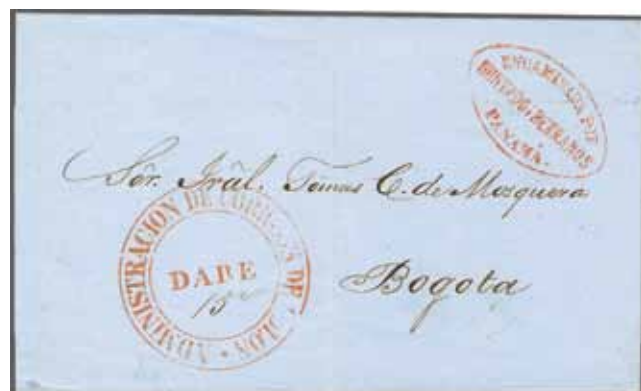 ENCAMINADA POR
HURTADO Y HERMANOS
PANAMÁ.
Sôr. Grâl. Tomas C. de Mosquera
Bogota
ADMINISTRACION DE CORREOS DE
DABE
15